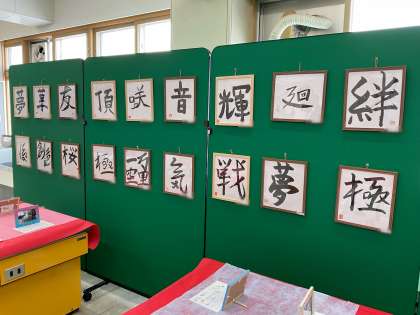 夢 草 友 頂 咲 音 輝 廻 絆
桜 極 気 戦 夢 極